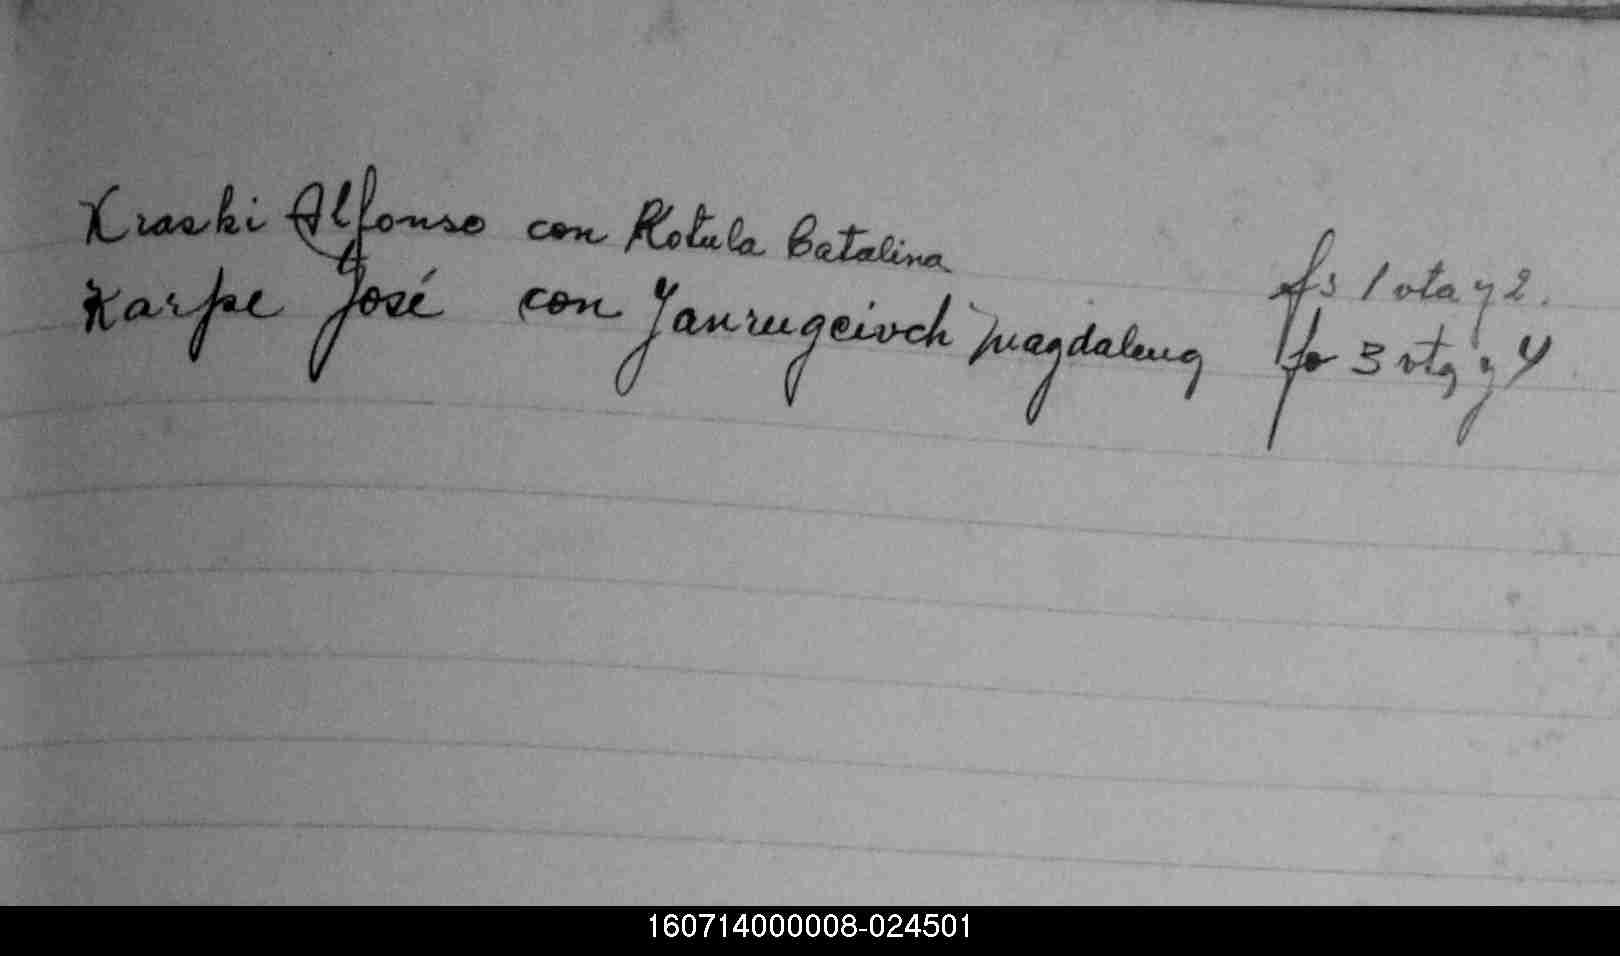 Kraski Alfonso con Kotula Catalina fs 1 vta y 2.
Karpe José con Janrugeivch Magdalena fo 3 vta y 4
160714000008-024501